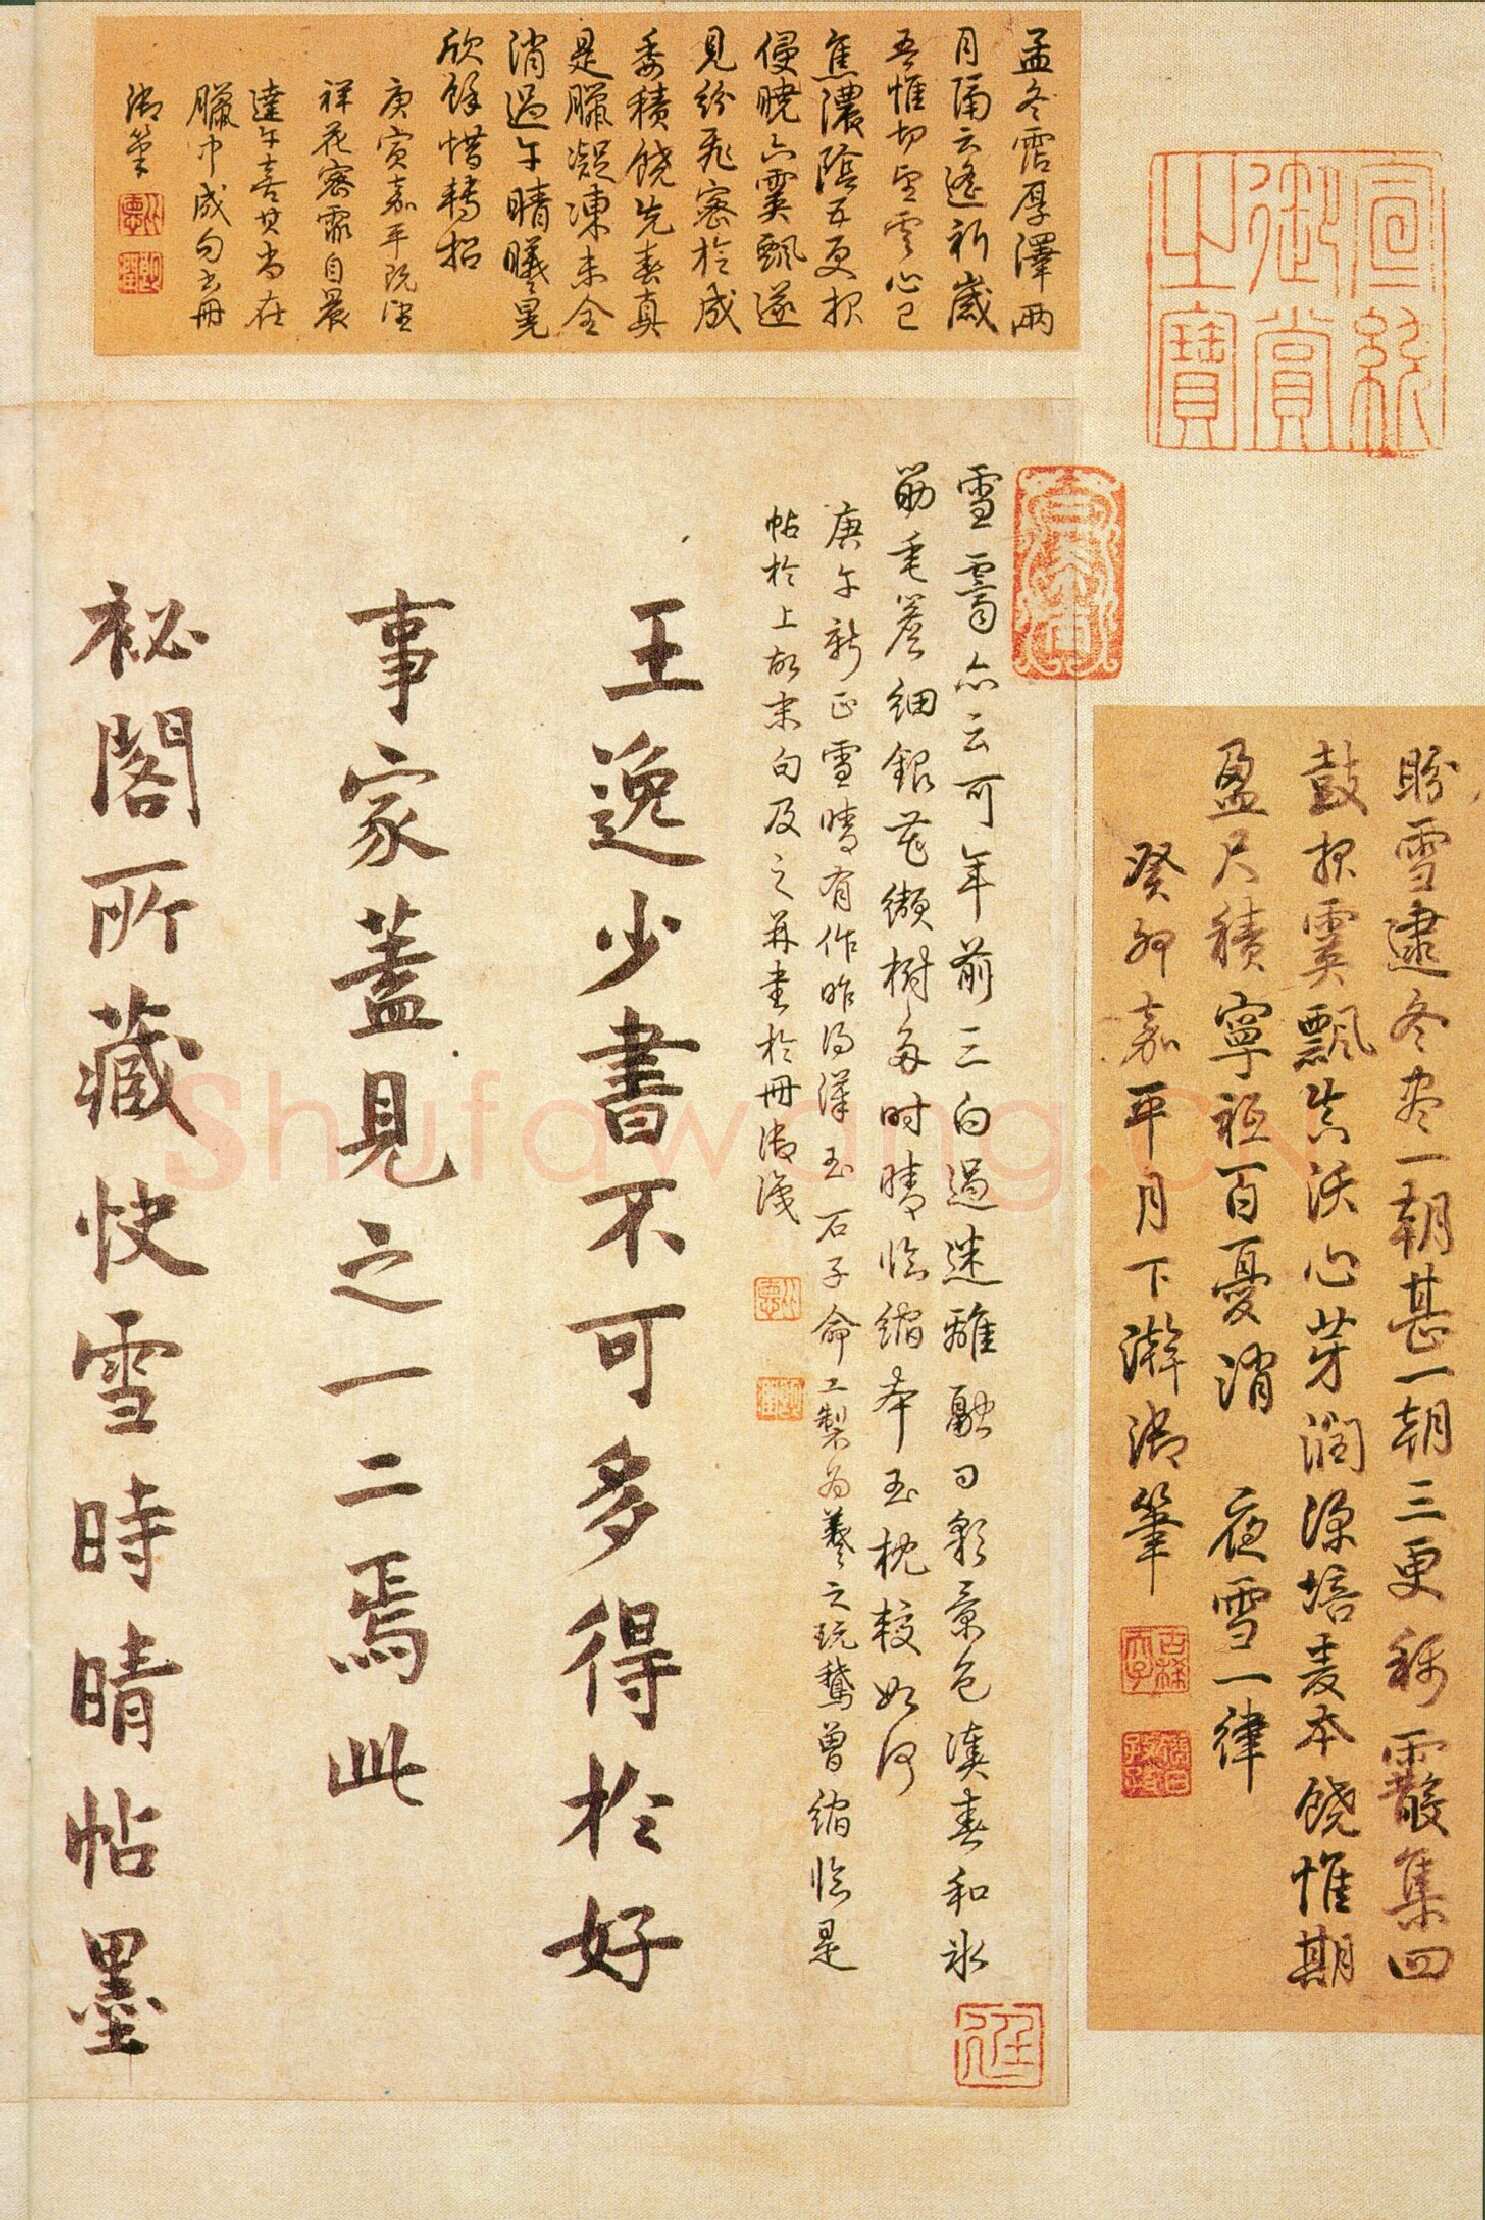 孟冬霑厚澤兩
月隔云遙祈歲
吾惟切望雲心已
焦濃陰五更報
侵曉六霙飄遂
見紛飛密於成
委積饒先春真
是臘凝凍未全
消過午晴曦晃
欣餘惜轉招
庚寅嘉平既望
祥花密霏自晨
達午喜其尚在
臘中成句書冊
御筆
宣統
御賞
之寶
盼雪逮冬杪一朝甚一朝三更稀霰集四
鼓報霙飄共沃心芽潤深培麦本饒惟期
盈尺積寧祗百憂消 夜雪一律
癸卯嘉平月下澣御筆
古稀
天子
猶日
孜孜
雪霽亦云可年前三白過迷離融日彩景色湊春和氷
筋垂簷細銀花纈樹多时晴臨縮本玉枕較如何
庚午新正雪晴有作昨得漢玉石子命工製为羲之玩鵞曾縮臨是
帖於上故末句及之并書於冊御識
王逸少書不可多得於好
事家蓋見之一二焉此
祕閣所藏快雪時晴帖墨
Shufawang.CN